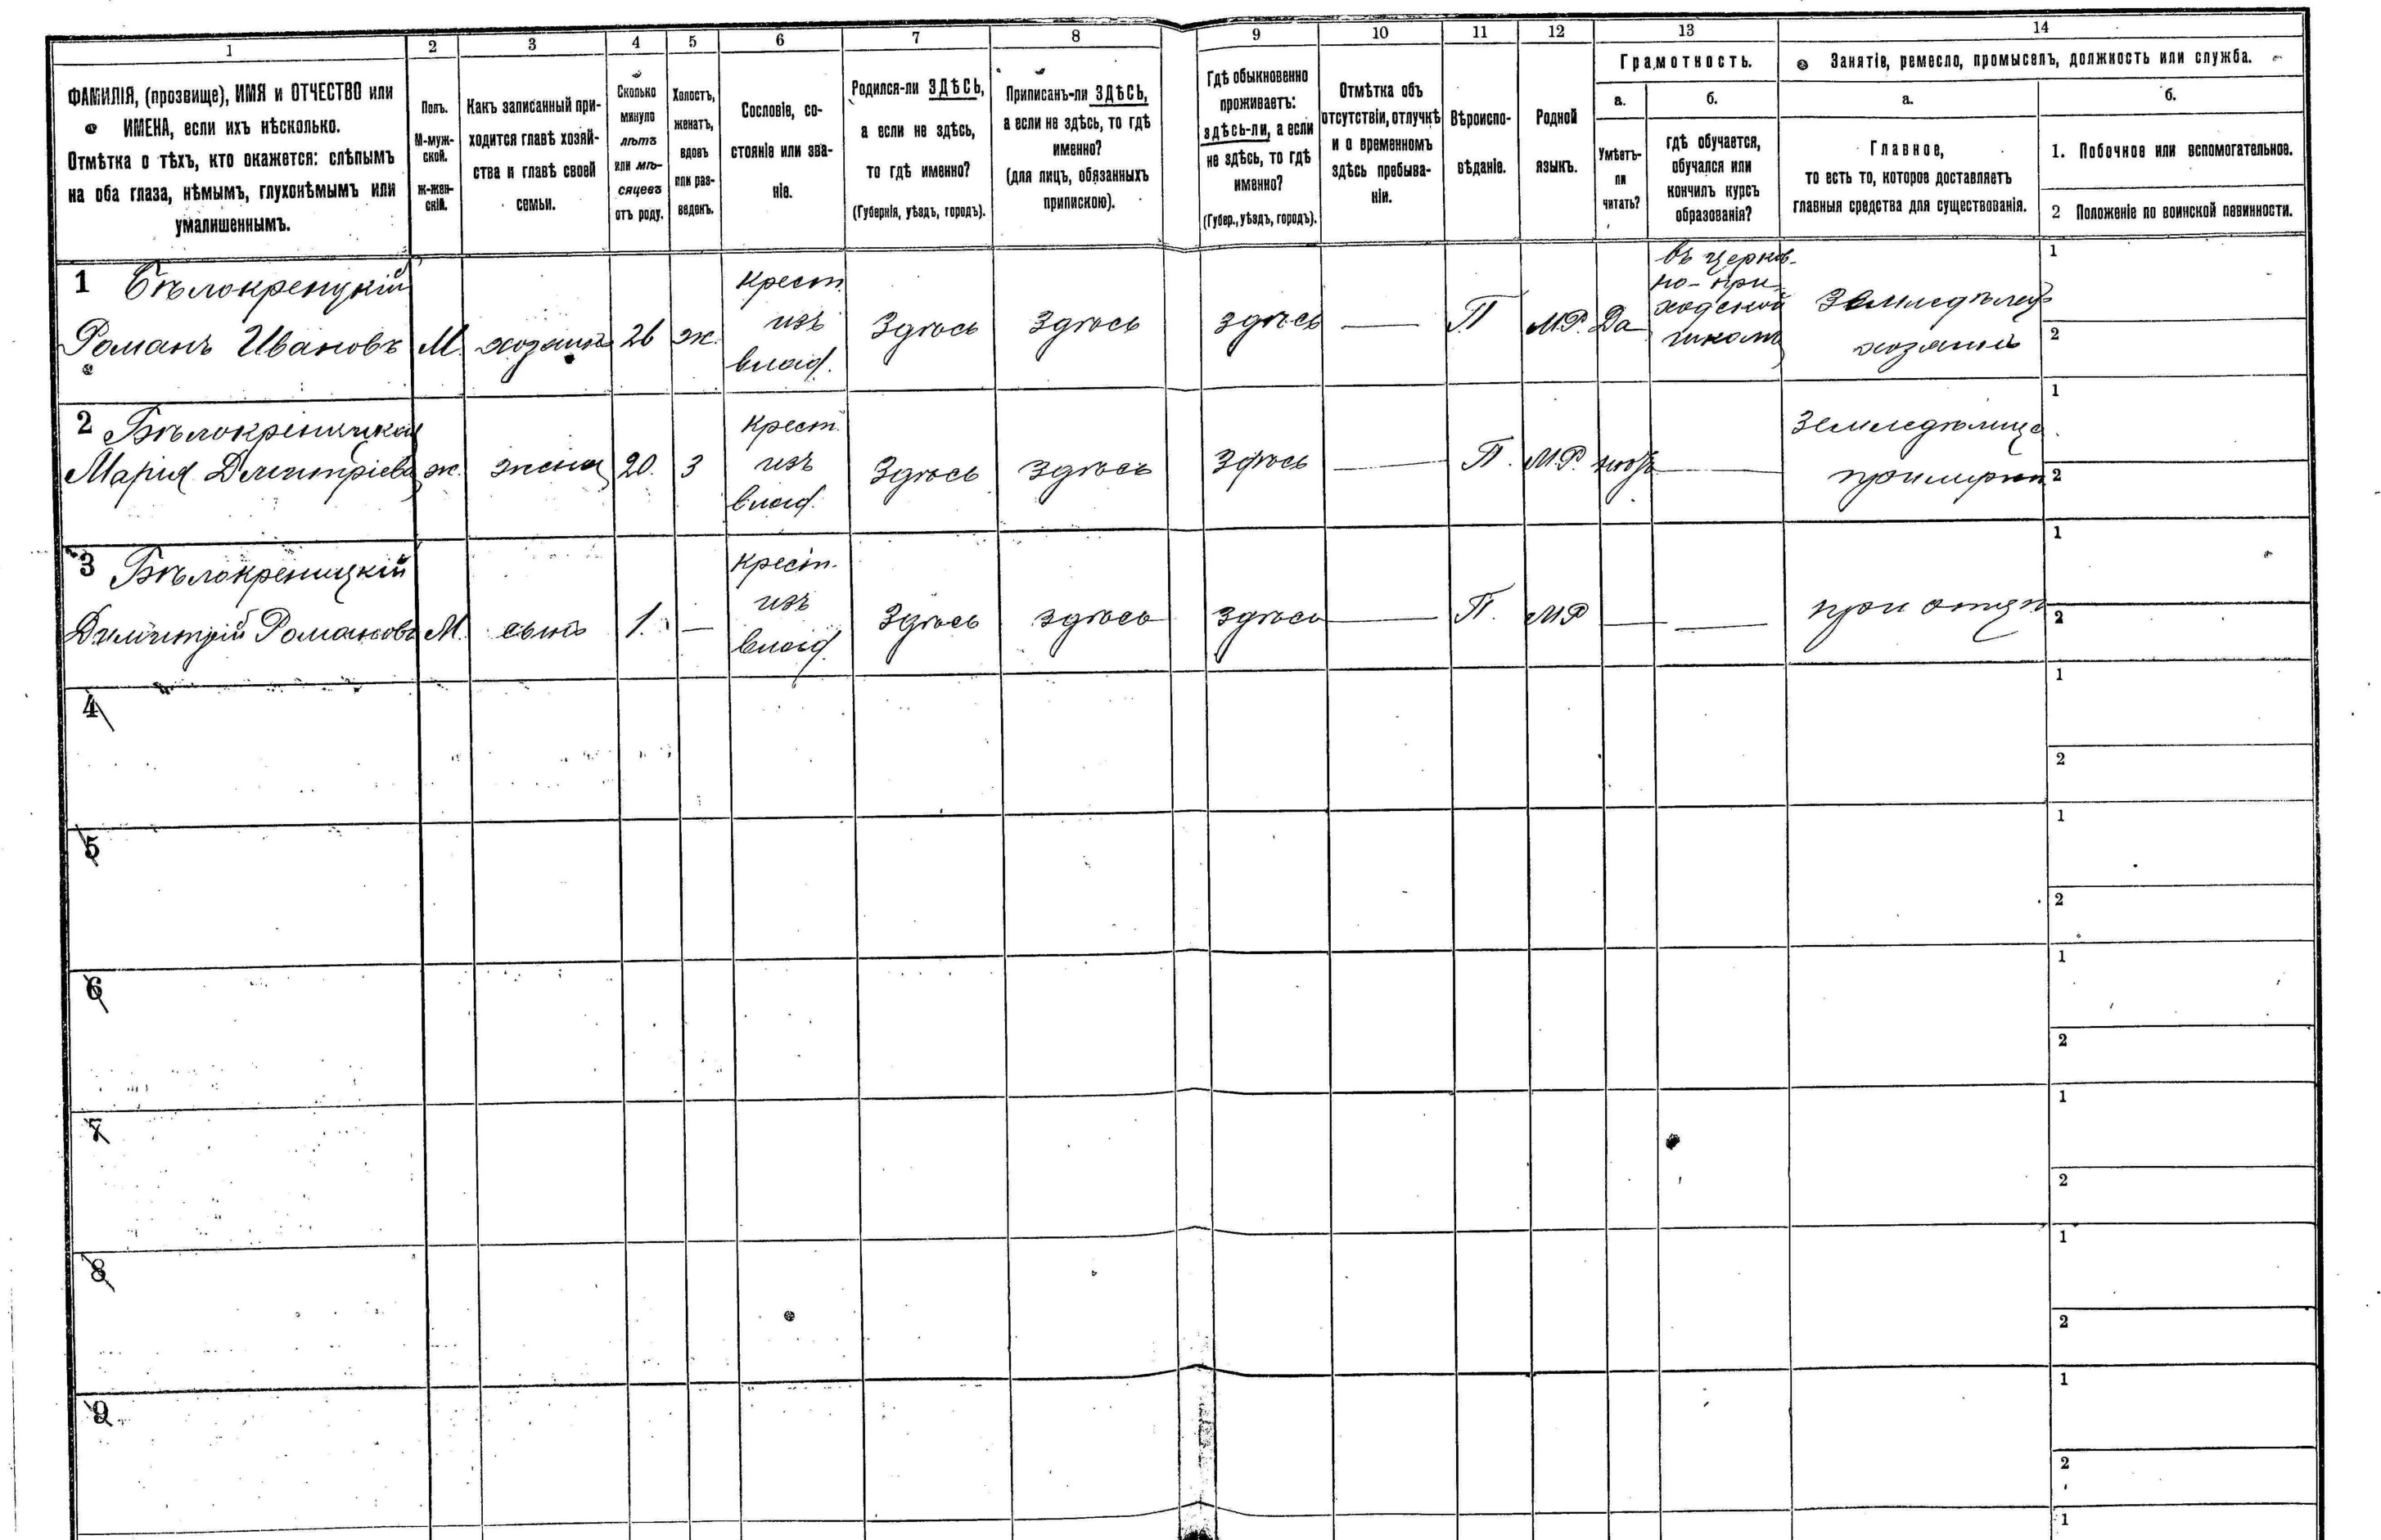 1 2 3 4 5 6 7 8 9 10 11 12 13 14
ФАМИЛІЯ, (прозвище), ИМЯ и ОТЧЕСТВО или
ИМЕНА, если ихъ нѣсколько.
Отмѣтка о тѣхъ, кто окажется: слѣпымъ
на оба глаза, нѣмымъ, глухонѣмымъ или
умалишеннымъ.
Полъ.
М-муж-
ской.
ж-жен-
скій.
Какъ записанный при-
ходится главѣ хозяй-
ства и главѣ своей
семьи.
Сколько
минуло
лѣтъ
или мѣ-
сяцевъ
отъ роду.
Холостъ,
женатъ,
вдовъ
или раз-
веденъ.
Сословіе, со-
стояніе или зва-
ніе.
Родился-ли ЗДѢСЬ,
а если не здѣсь,
то гдѣ именно?
(Губернія, уѣздъ, городъ).
Приписанъ-ли ЗДѢСЬ,
а если не здѣсь, то гдѣ
именно?
(для лицъ, обязанныхъ
припискою).
Гдѣ обыкновенно
проживаетъ:
здѣсь-ли, а если
не здѣсь, то гдѣ
именно?
(Губер., уѣздъ, городъ).
Отмѣтка объ
отсутствіи, отлучкѣ
и о временномъ
здѣсь пребыва-
ніи.
Вѣроиспо-
вѣданіе.
Родной
языкъ.
Грамотность.
а.
Умѣетъ-
ли
читать?
б.
гдѣ обучается,
обучался или
кончилъ курсъ
образованія?
Занятіе, ремесло, промыселъ, должность или служба.
а.
Главное,
то есть то, которое доставляетъ
главныя средства для существованія.
б.
1. Побочное или вспомогательное.
2 Положеніе по воинской повинности.
1 Бѣлокреницкій
Романъ Ивановъ
М.
хозяинъ
26
ж.
крест.
изъ
влад.
Здѣсь
Здѣсь
здѣсь
—
П
М.Р.
Да
въ церков-
но-при-
ходской
школѣ
Земледѣлецъ
хозяинъ
1
2
2 Бѣлокреницкая
Марія Дмитріева
ж.
жена
20.
З
крест.
изъ
влад.
Здѣсь
здѣсь
Здѣсь
—
П.
М.Р.
—
1
2
3 Бѣлокреницкій
Дмитрій Романовъ
М.
сынъ
1.
—
крест.
изъ
влад.
Здѣсь
здѣсь
Здѣсь
—
П.
МР
—
—
при отцѣ
1
2
4
1
2
5
1
2
6
1
2
7
1
2
8
1
2
9
1
2
1